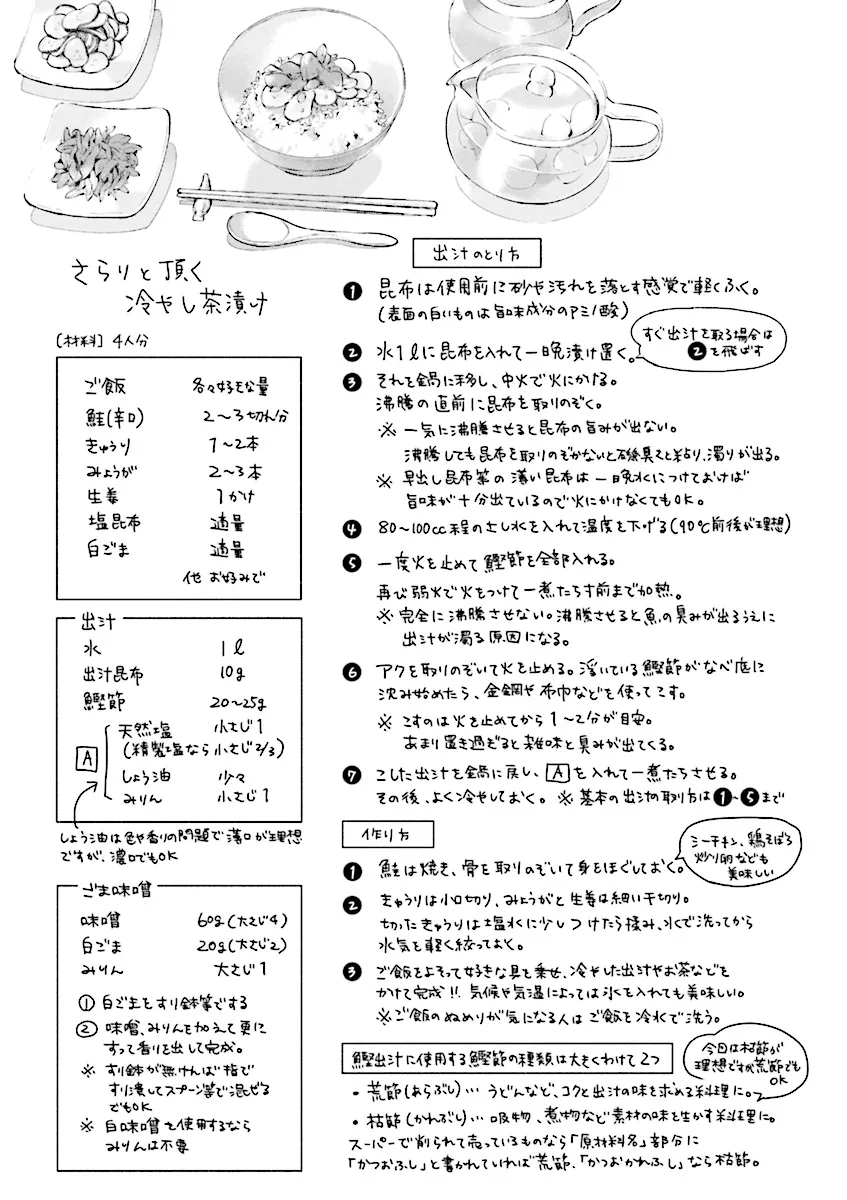 さらりと頂く
冷やし茶漬け
〔材料〕4人分
ご飯 各々好きな量
鮭(辛口) 2〜3切れ分
きゅうり 1〜2本
みょうが 2〜3本
生姜 1かけ
塩昆布 適量
白ごま 適量
他 お好みで
出汁
水 1ℓ
出汁昆布 10g
鰹節 20〜25g
A
天然塩 小さじ1
(精製塩なら小さじ2/3)
しょう油 少々
みりん 小さじ1
しょう油は色や香りの問題で薄口が理想
ですが、濃口でもOK
ごま味噌
味噌 60g(大さじ4)
白ごま 20g(大さじ2)
みりん 大さじ1
① 白ごまをすり鉢等でする
② 味噌、みりんを加えて更に
すって香りを出して完成。
※ すり鉢が無ければ指で
すり潰してスプーン等で混ぜる
でもOK
※ 白味噌を使用するなら
みりんは不要
出汁のとり方
❶ 昆布は使用前に砂や汚れを落とす感覚で軽くふく。
(表面の白いものは旨味成分のアミノ酸)
❷ 水1ℓに昆布を入れて一晩漬け置く。
すぐ出汁を取る場合は
❷を飛ばす
❸ それを鍋に移し、中火で火にかける。
沸騰の直前に昆布を取りのぞく。
※ 一気に沸騰させると昆布の旨みが出ない。
沸騰しても昆布を取りのぞかないと磯臭さと粘り、濁りが出る。
※ 早出し昆布等の薄い昆布は一晩水につけておけば
旨味が十分出ているので火にかけなくてもOK。
❹ 80〜100cc程のさし水を入れて温度を下げる(90℃前後が理想)
❺ 一度火を止めて鰹節を全部入れる。
再び弱火で火をつけて一煮たちす前まで加熱。
※ 完全に沸騰させない。沸騰させると魚の臭みが出るうえに
出汁が濁る原因になる。
❻ アクを取りのぞいて火を止める。浮いている鰹節がなべ底に
沈み始めたら、金網や布巾などを使ってこす。
※ こすのは火を止めてから1〜2分が目安。
あまり置き過ぎると雑味と臭みが出てくる。
❼ こした出汁を鍋に戻し、Aを入れて一煮たちさせる。
その後、よく冷やしておく。 ※基本の出汁の取り方は❶〜❺まで
作り方
❶ 鮭は焼き、骨を取りのぞいて身をほぐしておく。
シーチキン、鶏そぼろ
炒り卵なども
美味しい
❷ きゅうりは小口切り、みょうがと生姜は細い千切り。
切ったきゅうりは塩水に少しつけたら揉み、水で洗ってから
水気を軽く絞っておく。
❸ ご飯をよそって好きな具を乗せ、冷やした出汁やお茶などを
かけて完成!! 気候や気温によっては氷を入れても美味しい。
※ご飯のぬめりが気になる人はご飯を冷水で洗う。
鰹出汁に使用する鰹節の種類は大きくわけて2つ
今日は枯節が
理想ですが荒節でも
OK
・荒節(あらぶし)… うどんなど、コクと出汁の味を求める料理に。
・枯節(かれぶし)… 吸物、煮物など素材の味を生かす料理に。
スーパーで削られて売っているものなら「原材料名」部分に
「かつおふし」と書かれていれば荒節、「かつおかれふし」なら枯節。